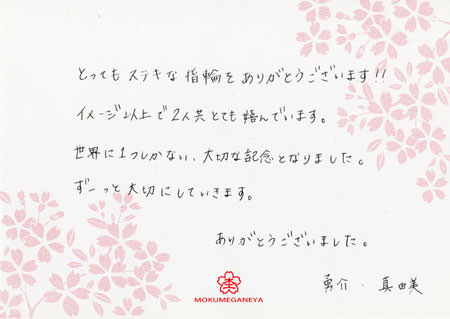 とってもステキな指輪をありがとうございます!!
イメージ以上で2人共とても喜んでいます。
世界に1つしかない、大切な記念となりました。
ずーっと大切にしていきます。
ありがとうございました。
勇介・真由美
MOKUMEGANEYA